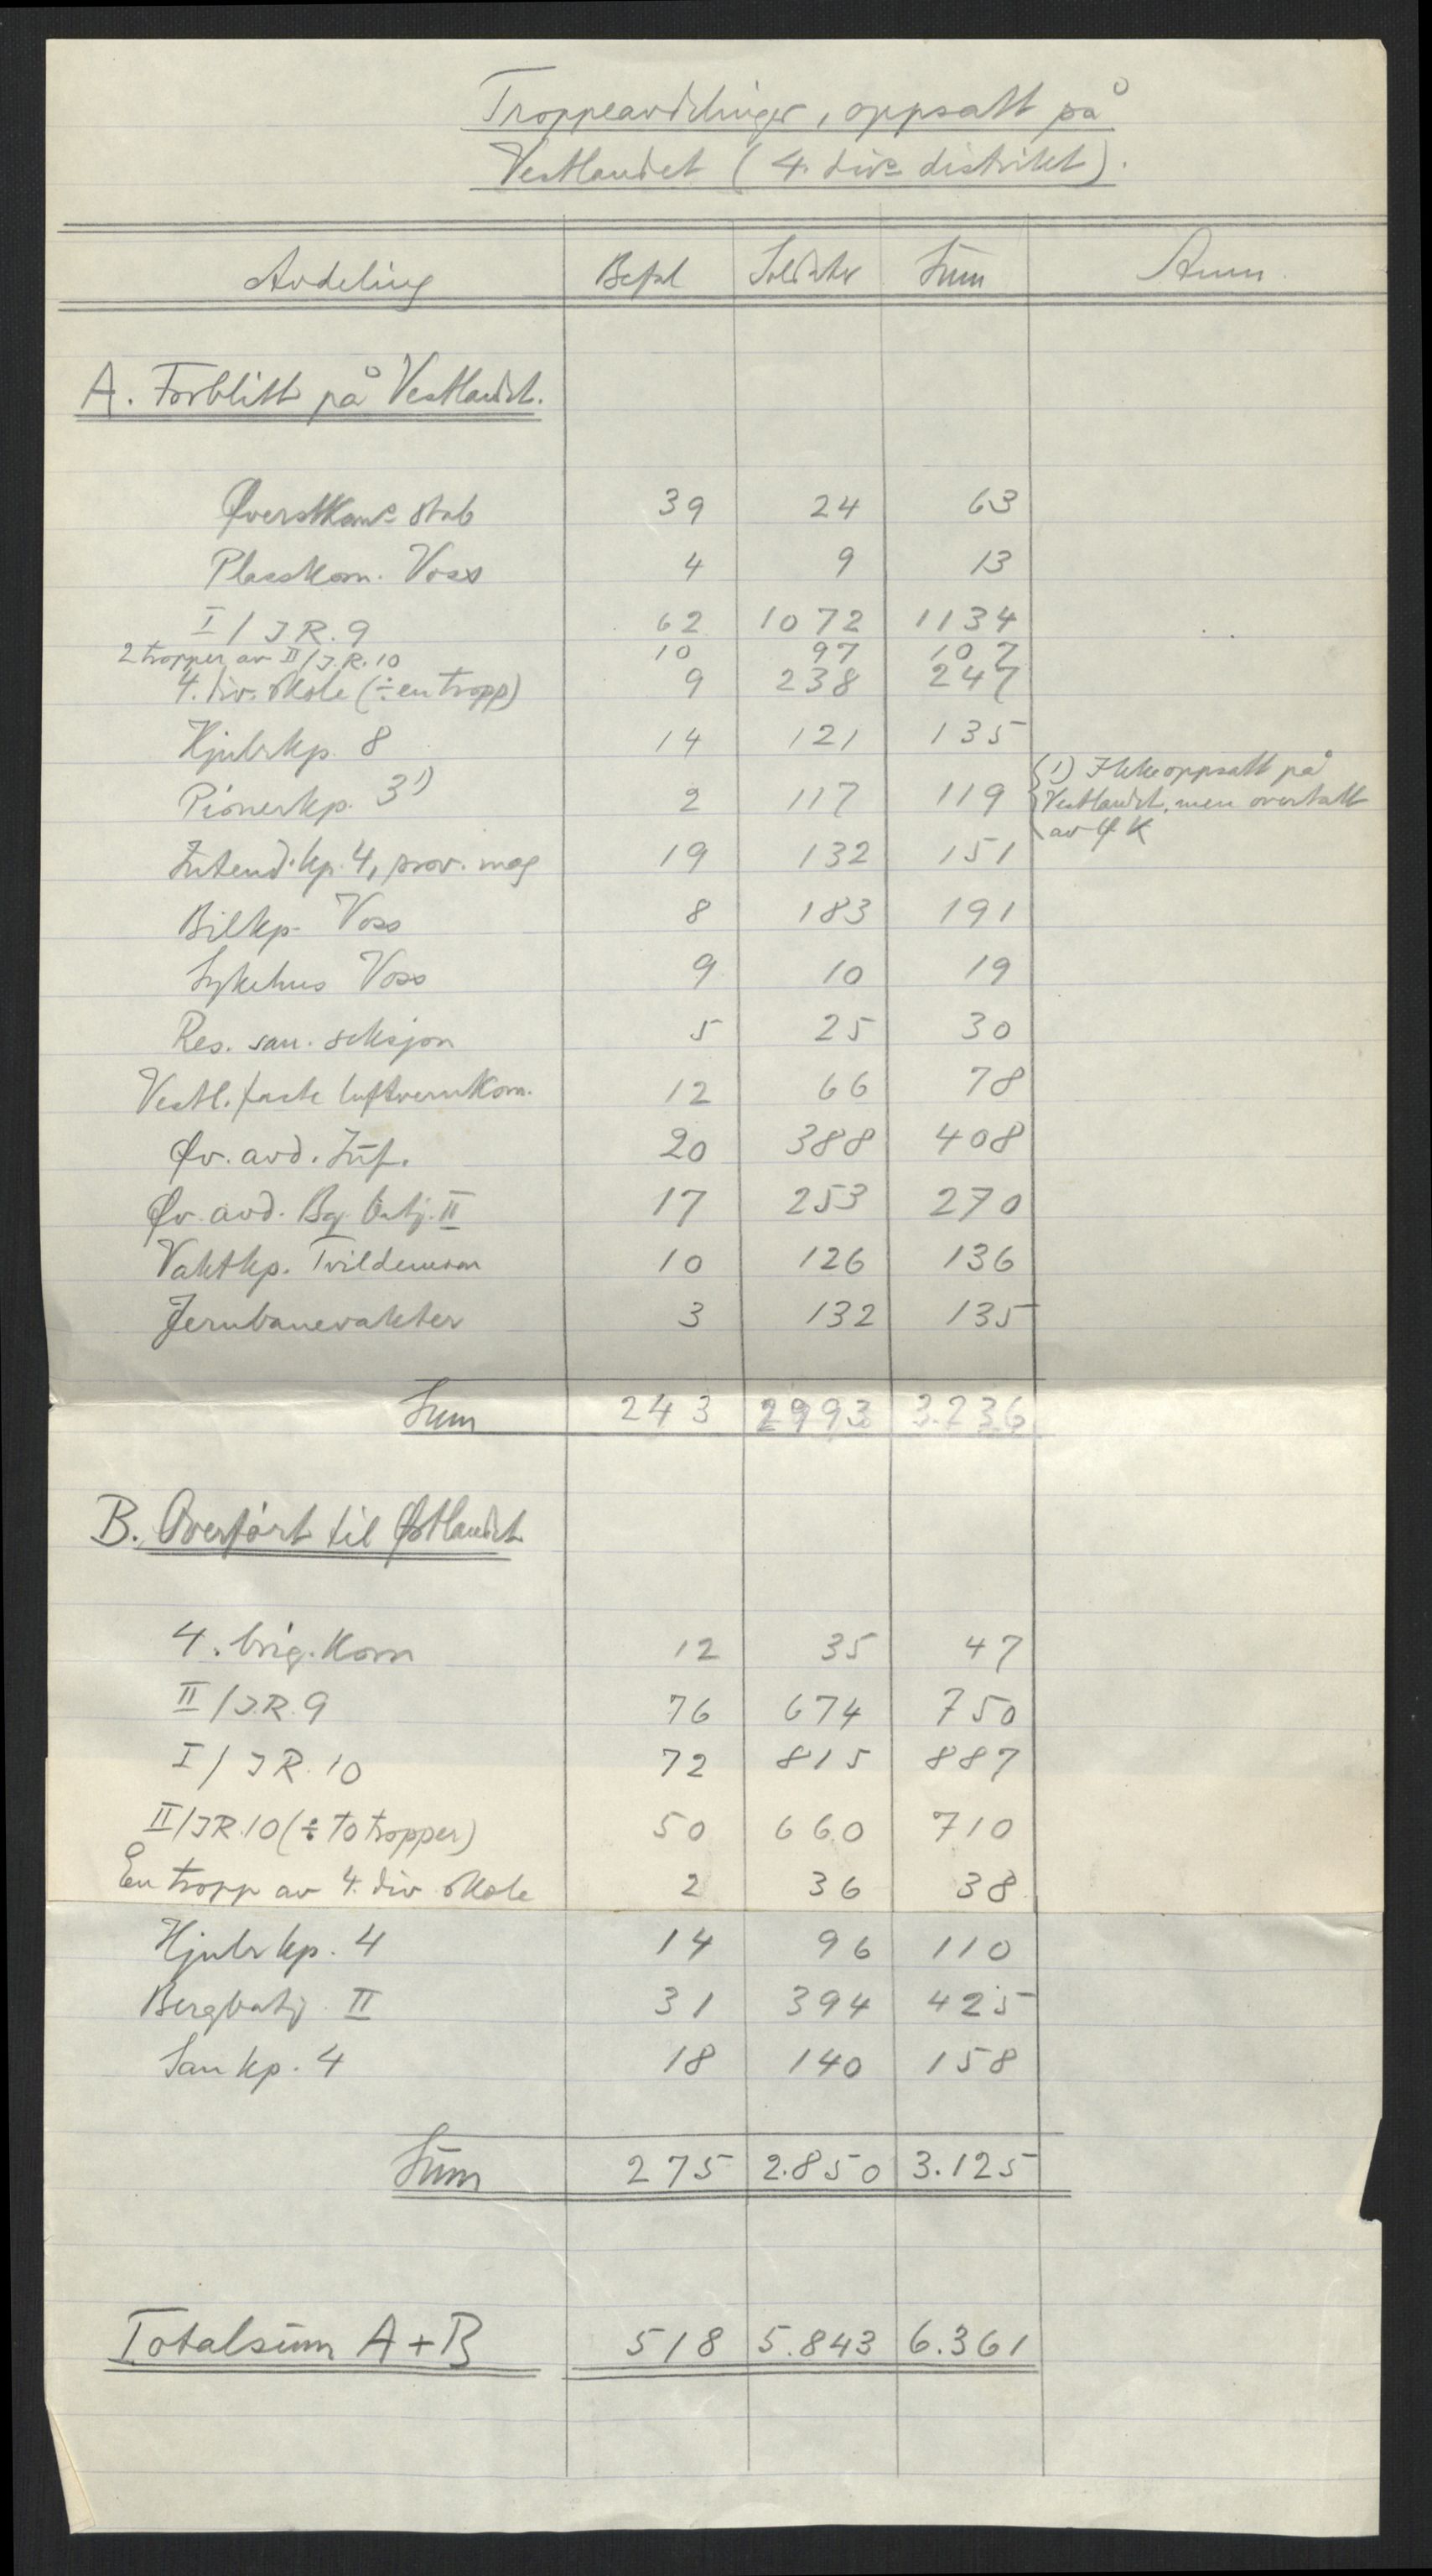 Troppeavdelinger, oppsatt på
Vestlandet (4. divs distrikt).
Avdeling Befal Soldater Sum Anm.
A. Forblitt på Vestlandet.
Øverstkoms stab 39 24 63
Plasskom. Voss 4 9 13
I / J R. 9 62 1072 1134
2 tropper av II / J.R. 10 10 97 107
4. div. skole (÷ en tropp) 9 238 247
Hjulrkp. 8 14 121 135
Pionerkp. 3 1) 2 117 119
(1) Ikke oppsatt på
Vestlandet, men overtatt
av Ø K
Intend. kp. 4, prov. mag 19 132 151
Bilkp. Voss 8 183 191
Sykehus Voss 9 10 19
Res. san. seksjon 5 25 30
Vestl. faste luftvernkom. 12 66 78
Øv. avd. Inf. 20 388 408
Øv. avd. Bg. batj. II 17 253 270
Vaktkp. Tvildemoen 10 126 136
Jernbanevakter 3 132 135
Sum 243 2993 3.236
B. Overført til Østlandet
4. brig. kom 12 35 47
II / J.R. 9 76 674 750
I / J R. 10 72 815 887
II / J R. 10 (÷ to tropper) 50 660 710
En tropp av 4. div skole 2 36 38
Hjulrkp. 4 14 96 110
Bergbatj. II 31 394 425
San kp. 4 18 140 158
Sum 275 2.850 3.125
Totalsum A + B 518 5.843 6.361